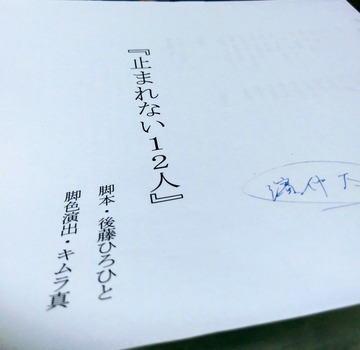 『止まれない12人』
脚本・後藤ひろひと
脚色演出・キムラ真